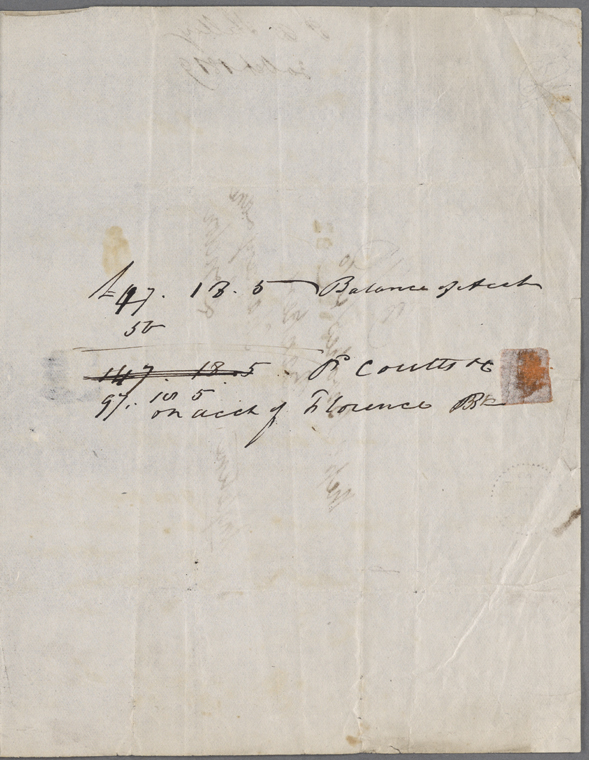 £47. 18. 5 Balance of Acct
50
147. 18. 5. Pr Coutts &c
97. 18 5
on acct of Florence Bk